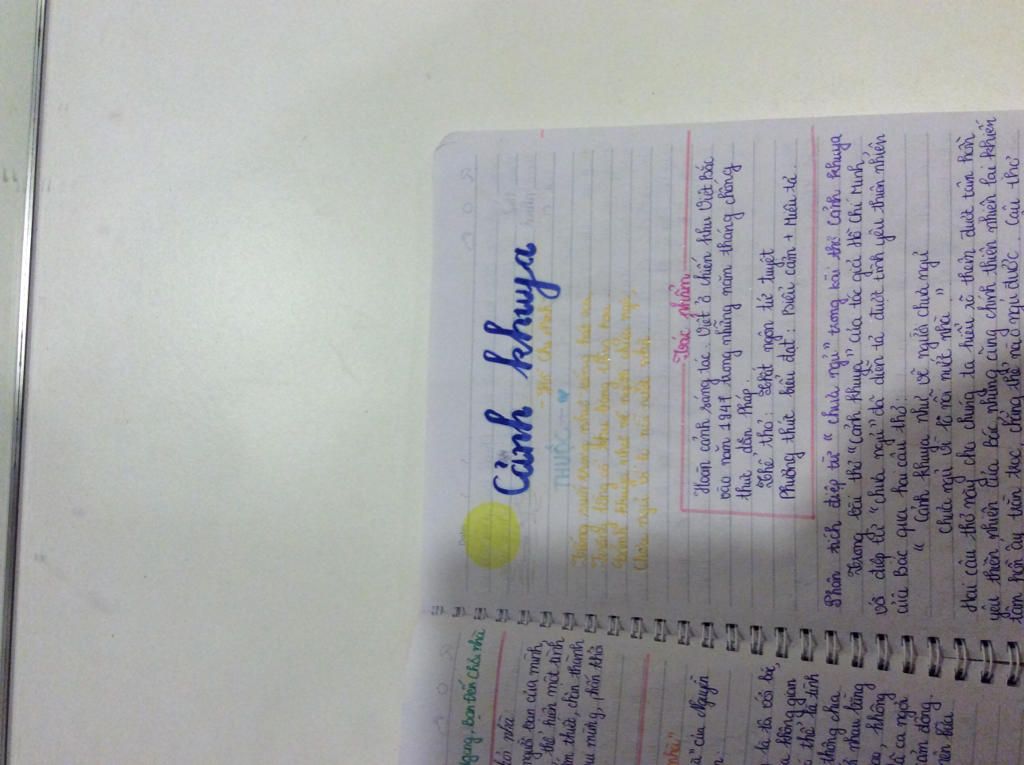 Cảnh khuya
- Hồ Chí Minh -
THUỘC
Tiếng suối trong như tiếng hát xa
Trăng lồng cổ thụ bóng lồng hoa
Cảnh khuya như vẽ người chưa ngủ
Chưa ngủ vì lo nỗi nước nhà.
Tác phẩm
Hoàn cảnh sáng tác: Viết ở chiến khu Việt Bắc
vào năm 1947 trong những năm tháng chống
thực dân Pháp.
Thể thơ: Thất ngôn tứ tuyệt
Phương thức biểu đạt: Biểu cảm + Miêu tả.
Phân tích điệp từ "chưa ngủ" trong bài thơ Cảnh khuya
Trong bài thơ "Cảnh khuya" của tác giả Hồ Chí Minh,
với điệp từ "chưa ngủ" đã diễn tả được tình yêu thiên nhiên
của Bác qua hai câu thơ:
" Cảnh khuya như vẽ người chưa ngủ
Chưa ngủ vì lo nỗi nước nhà "
Hai câu thơ này cho chúng ta hiểu rõ thêm được tâm hồn
yêu thiên nhiên của Bác, nhưng cũng chính thiên nhiên lại khiến
tâm hồn ấy trằn trọc, chẳng thể nào ngủ được. Câu thơ
bạn đến chơi nhà
người bạn của mình,
thể hiện một tình
chân thành
mừng, phấn khởi
của Nguyễn
không gian
thể là tình
không
ca ngợi
cảm động.